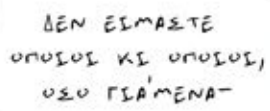 ΔΕΝ ΕΙΜΑΣΤΕ
ΟΠΟΙΟΙ ΚΙ ΟΠΟΙΟΙ,
ΟΣΟ ΓΙΑ ΜΕΝΑ-